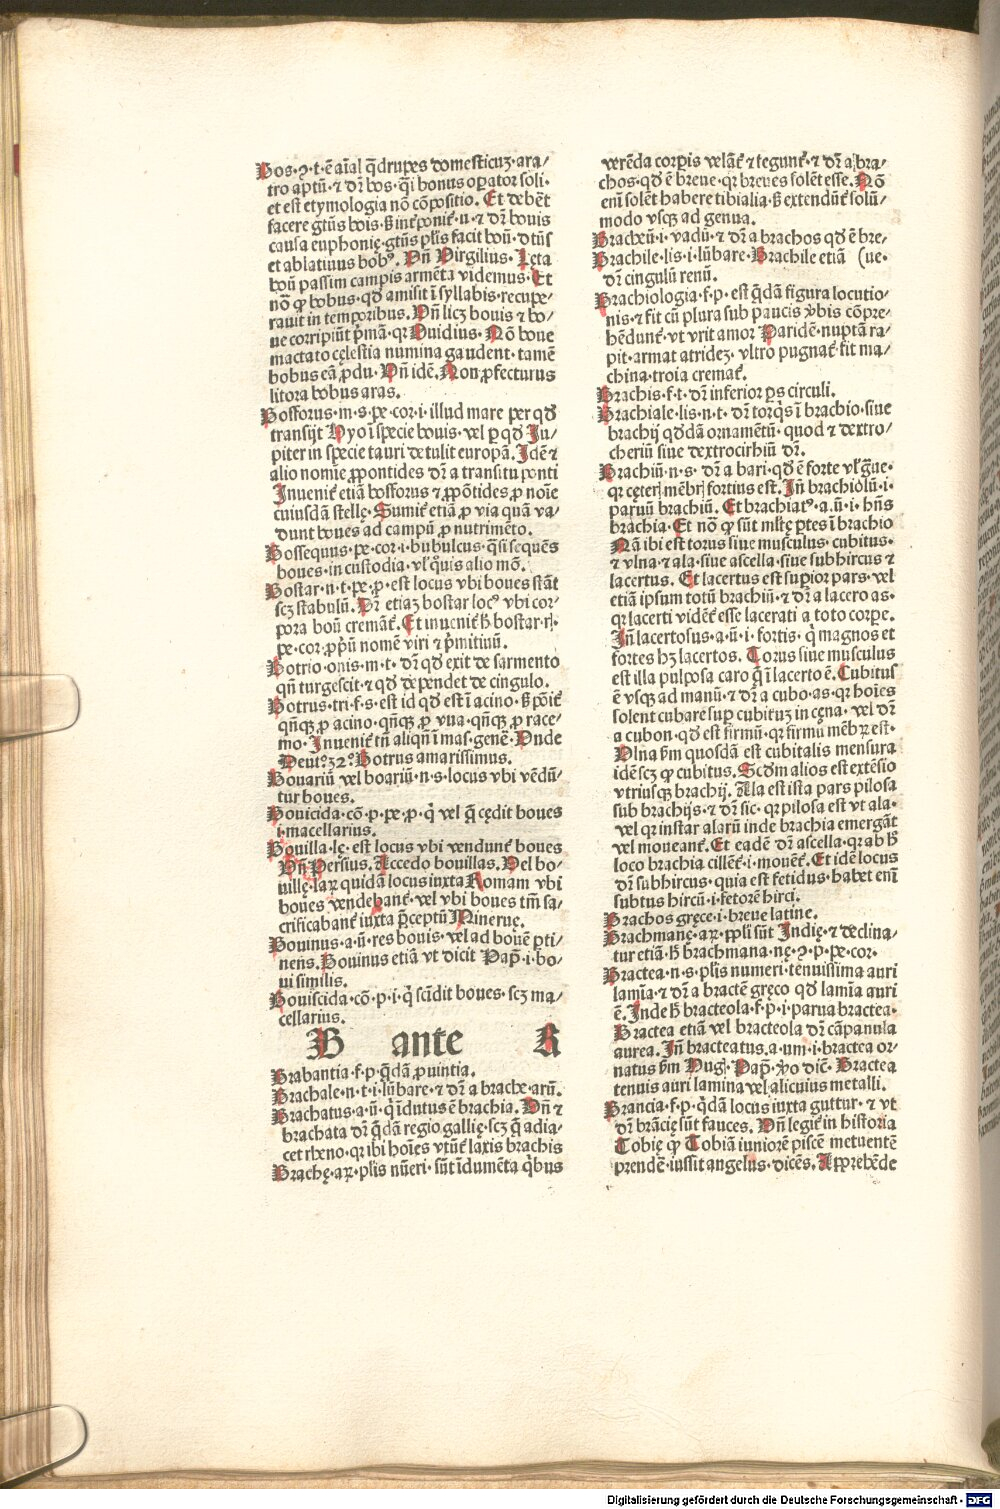 Bos·ꝯ·t·ē aīal q̄drupes domesticuꝫ·ara/
tro aptū·⁊ dr̄ bos·q̄i bonus opator soli·
et est etymologia nō cōpositio. Et debēt
facere gtūs bois·ß int̄ponit̄·u·⁊ dr̄ bouis
causa euphonię·gtūs plīs facit boū·dtūs
et ablatiuus bobꝰ. Vn̄ Virgilius. Lęta
boū passim campis armēta videmus·Et
nō ꝙ bobus·qd̄ amisit ī syllabis·recupe/
rauit in temporibus. Vn̄ licꝫ bouis ⁊ bo/
ue corripiūt p̄mā·qr Ouidius·Nō boue
mactato cęlestia numina gaudent·tamē
bobus eā ꝓdu·Vn̄ idē. Non ꝓfecturus
litora bobus aras.
Bosforus·m·s·pe·cor·i·illud mare per qd̄
transijt Yo ī specie bouis·vel p qd̄ Ju/
piter in specie tauri detulit europā. Idē ⁊
alio nomīe ꝓpontides dr̄ a transitu ponti
Inuenit̄ etiā bosforus ⁊ ꝓpōtides ꝓ noīe
cuiusdā stellę·Sumit̄ etiā ꝓ via quā va/
dunt boues ad campū ꝓ nutrimēto.
Bossequus·pe·cor·i·bubulcus·q̄si sequēs
boues·in custodia·vl̄ quis alio mō.
Bostar·n·t·pe·ꝓ·est locus vbi boues stāt
scꝫ stabulū. Dr̄ etiaꝫ bostar locꝰ vbi cor/
pora boū cremāt̄. Et inuenit̄ h̄ bostar·r̄·
pe·cor·ꝓp̄ū nomē viri ⁊ p̄mitiuū.
Botrio·onis·m·t·dr̄ qd̄ exit de sarmento
qn̄ turgescit·⁊ qd̄ dependet de cingulo.
Botrus·tri·f·s·est id qd̄ est ī acino·ß pōit̄
qn̄qꝫ ꝓ acino·qn̄qꝫ ꝓ vua·qn̄qꝫ ꝓ race/
mo·Inuenit̄ tn̄ aliqn̄ ī mas·genē·Vnde
Deut̉·32·Botrus amarissimus.
Bouariū vel boariū·n·s·locus vbi vēdū/
tur boues.
Bouicida·cō·p·pe·ꝓ·q̇ vel q̄ cędit boues
i·macellarius.
Bouilla·lę·est locus vbi vendunt̄ boues
Vn̄ Persius. Accedo bouillas. Vel bo/
uillę·laꝝ quidā locus iuxta Romam vbi
boues vendebant̄·vel vbi boues tm̄ sa/
crificabant̄ iuxta p̄ceptū Mineruę.
Bouinus·a·ū·res bouis·vel ad bouē pti/
nens. Bouinus etiā vt dicit Pap̄·i·bo/
ui similis.
Bouiscida·cō·p·i·q̇ scīdit boues·scꝫ ma/
cellarius.
B ante R
Brabantia·f·p·q̄dā ꝓuintia.
Brachale·n·t·i·lūbare·⁊ dr̄ a brache·arū.
Brachatus·a·ū·q̇ īdutus ē brachia. Vn̄ ⁊
brachata dr̄ q̄dā regio gallię·scꝫ q̄ adia/
cet rheno·qr ibi hoīes vtūt̄ laxis brachis
Brachę·aꝝ·plīs nūeri·sūt īdumēta q̇bus
verēda corpis velāt̄ ⁊ tegunt̄·⁊ dr̄ a bra/
chos·qd̄ ē breue·qr breues solēt esse. Nō
enī solēt habere tibialia·ß extendūt̄ solū/
modo vsqꝫ ad genua.
Bracheū·i·vadū·⁊ dr̄ a brachos qd̄ ē bre/
Brachile·lis·i·lūbare·Brachile etiā (ue·
dr̄ cingulū renū.
Brachiologia·f·p·est q̄dā figura locutio/
nis·⁊ fit cū plura sub paucis v̄bis cōpre/
hēdunt̄·vt vrit amor Paridē·nuptā ra/
pit·armat atrideꝫ·vltro pugnat̄·fit ma/
china·troia cremat̄.
Brachis·f·t·dr̄ inferior ps circuli.
Brachiale·lis·n·t·dr̄ torq̄s ī brachio·siue
brachij qd̄dā ornamētū·quod ⁊ dextro/
cheriū siue dextrocirhiū dr̄.
Brachiū·n·s·dr̄ a bari·qd̄ ē forte vl̄ ḡue·
qr cęteꝝ mēbꝝ fortius est. Jn̄ brachiolū·i·
paruū brachiū. Et brachiatꝰ·a·ū·i·hn̄s
brachia·Et nō ꝙ sūt ml̄tę ptes ī brachio
Nā ibi est torus siue musculus·cubitus·
⁊ vlna·⁊ ala·siue ascella·siue subhircus ⁊
lacertus. Et lacertus est supior pars·vel
etiā ipsum totū brachiū·⁊ dr̄ a lacero as·
qr lacerti vidēt̄ esse lacerati a toto corpe.
Jn̄ lacertosus·a·ū·i·fortis·q̇ magnos et
fortes hꝫ lacertos. Torus siue musculus
est illa pulposa caro q̄ ī lacerto ē. Cubitus
ē vsqꝫ ad manū·⁊ dr̄ a cubo·as·qr hoīes
solent cubare sup cubituꝫ in cęna·vel dr̄
a cubon·qd̄ est firmū·qr firmū mēbꝝ est·
Vlna ẜm quosdā est cubitalis mensura
idē scꝫ ꝙ cubitus. Scd̄m alios est extēsio
vtriusqꝫ brachij. Ala est ista pars pilosa
sub brachijs·⁊ dr̄ sic·qr pilosa est vt ala·
vel qr instar alarū inde brachia emergāt
vel moueant̄. Et eadē dr̄ ascella·qr ab h̄
loco brachia cillēt̄·i·mouēt̄. Et idē locus
dr̄ subhircus·quia est fetidus·habet enī
subtus hircū·i·fetorē hirci.
Brachos gręce·i·breue latine.
Brachmanę·aꝝ·ppl̄i sūt Indię·⁊ declina/
tur etiā·h̄ brachmana·nę·ꝯ·p·pe·cor.
Bractea·n·s·plīs numeri·tenuissima auri
lamīa·⁊ dr̄ a bractē gręco qd̄ lamīa auri
ē. Inde h̄ bracteola·f·p·i·parua bractea·
Bractea etiā vel bracteola dr̄ cāpanula
aurea. Jn̄ bracteatus·a·um·i·bractea or/
natus ẜm Hug̉. Pap̄·v̄o dic̄. Bractea
tenuis auri lamina vel alicuius metalli.
Brancia·f·p·q̄dā locus iuxta guttur·⁊ vt
dr̄ brācię sūt fauces. Vn̄ legit̄ in historia
Tobię ꝙ Tobiā iuniorē piscē metuentē
prendē·iussit angelus·dicēs. Apprehēde
Digitalisierung gefördert durch die Deutsche Forschungsgemeinschaft - DFG